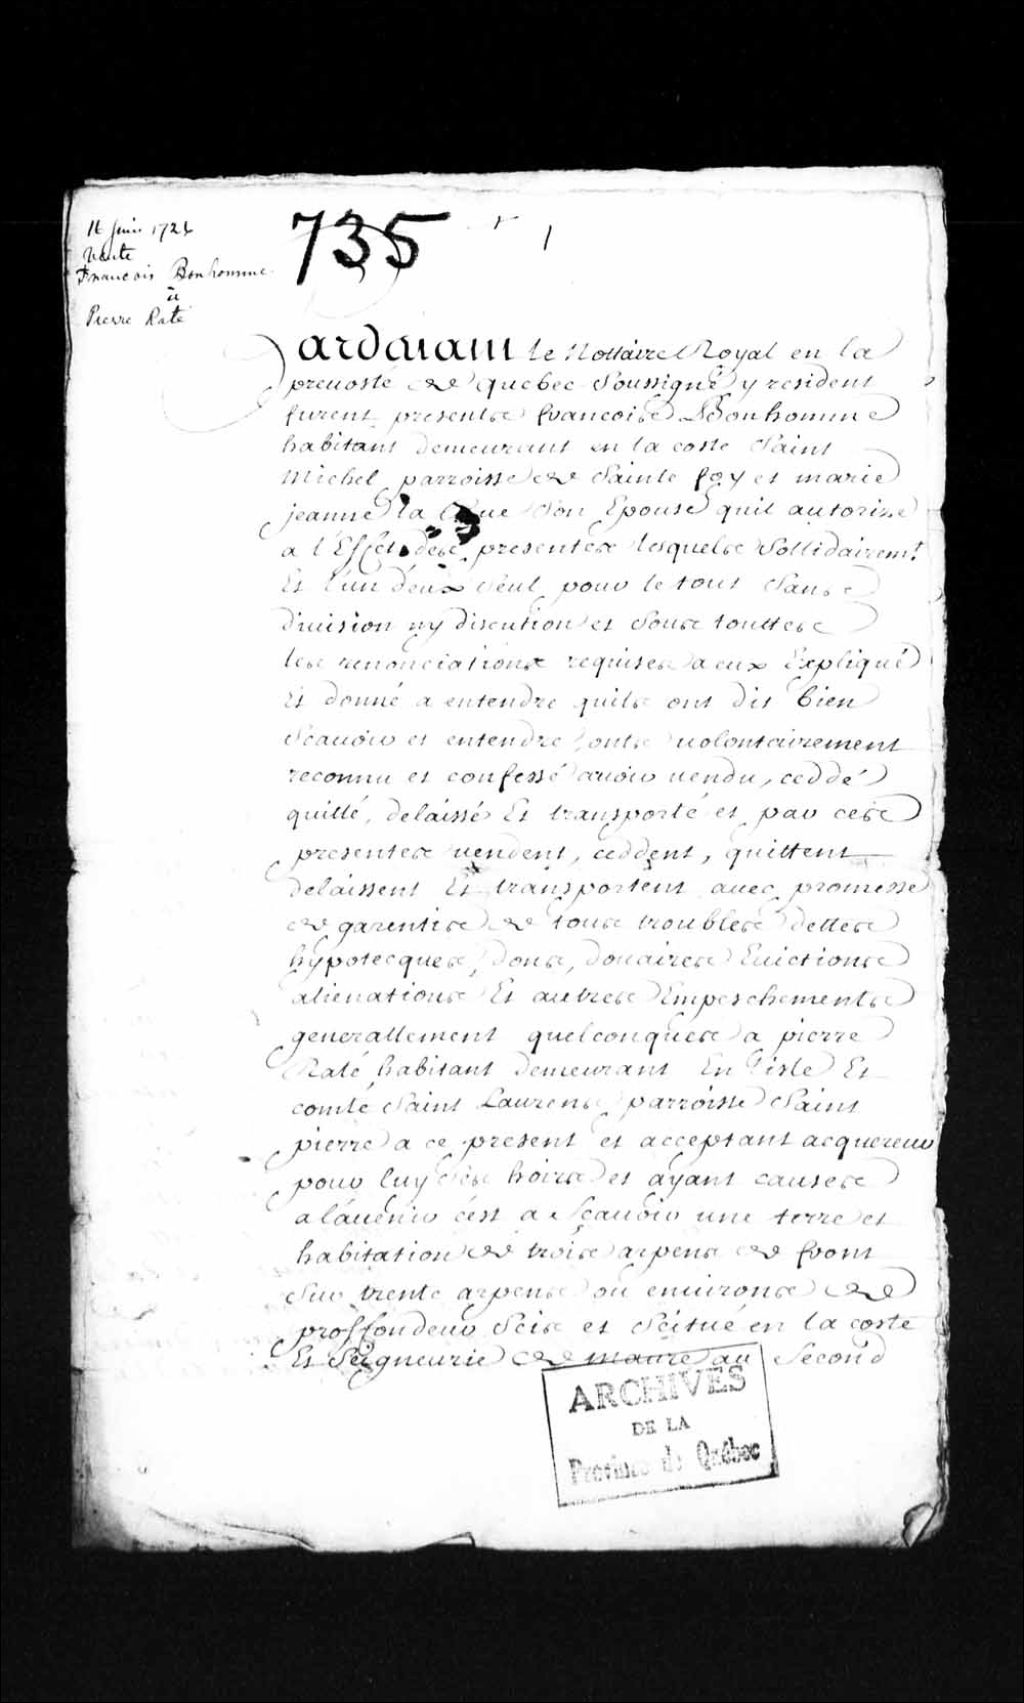 Juin 1724
Vente
Francois Bonhomme
à
Pierre Raté
735
1
Pardevant le Nottaire Royal en la
prevosté de quebec soussigné y resident
furent presents francois Bonhomme
habitant demeurant en la coste Saint
Michel parroisse de Sainte foy et marie
jeanne la son Epouse quil autorise
a l'Effet des presentes lesquels sollidairemt
Et l'un d'eux seul pour le tout sans
division ny discution et sous touttes
les renonciations requises a eux Expliqué
Et donné a entendre quils ont dit bien
scavoir et entendre onts volontairement
reconnu et confessé avoir vendu, ceddé
quitté, delaissé Et transporté et par ces
presentes vendent, ceddent, quittent
delaissent Et transportent avec promesse
de garentise de tous troubles dettes
hypotecques, dons, douaires Evictions
alienations Et autres Empeschements
generallement quelconques a pierre
Raté habitant demeurant En l'isle Et
comté Saint Laurens parroisse Saint
pierre a ce present et acceptant acquereur
pour luy ses hoirs et ayant causes
a l'avenir c'est a scavoir une terre et
habitation de trois arpens de front
sur trente arpens ou environs de
proffondeur scis et scitué en la coste
Et Seigneurie de maure au second
ARCHIVES
DE LA
Province de Québec